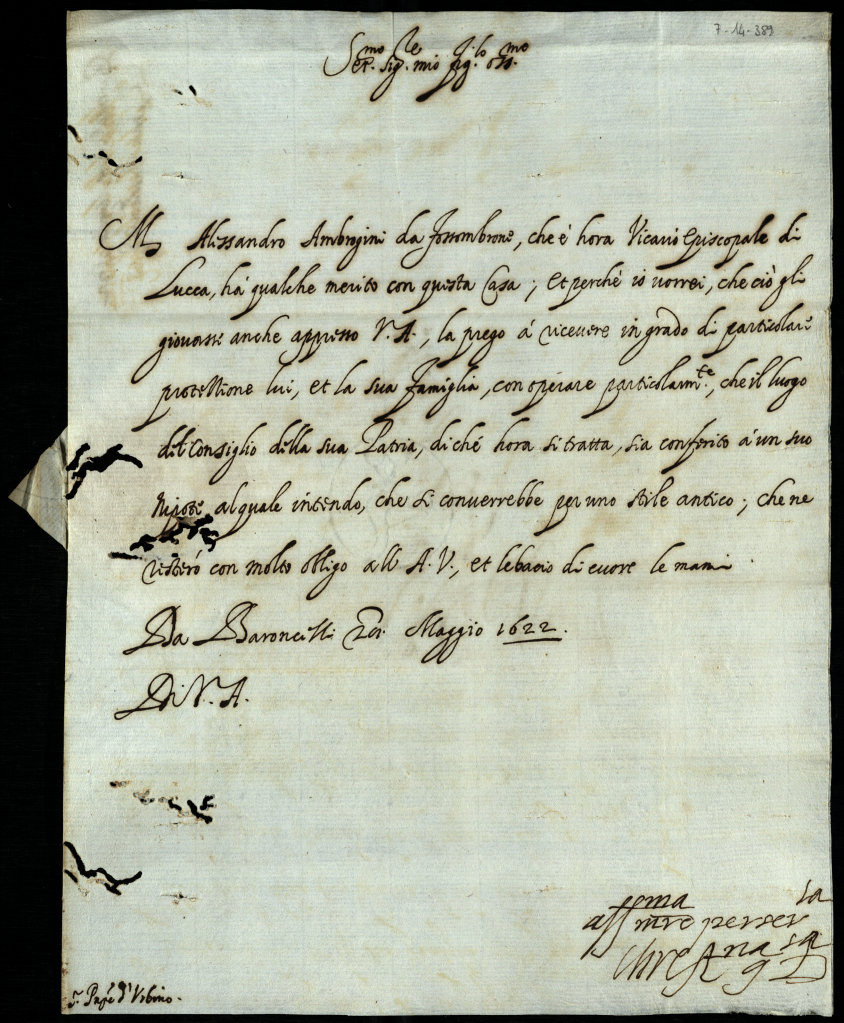 7-14-389
Ser.mo Sig.re mio fig.lo oss.mo
M. Alessandro Ambrogini da fossombrone, che è hora Vicario Episcopale di
Lucca, há qualche merito con questa Casa; et perché io vorrei, che ciò gli
giovasse anche appresso V.A., la prego á ricevere in grado di particolare
protettione lui, et la sua famiglia, con operare particolarm.te, che il luogo
del Consiglio della sua Patria, di ché hora si tratta, sia conferito á un suo
Nipote al quale intendo, che si converrebbe per uno stile antico; che ne
resteró con molto obligo all A.V., et le bacio di cuore le mani
Da Baroncelli Maggio 1622.
Di V.A.
aff.ma mre per ser.la
Chrest.na g D
S. Pnpe d'Urbino.